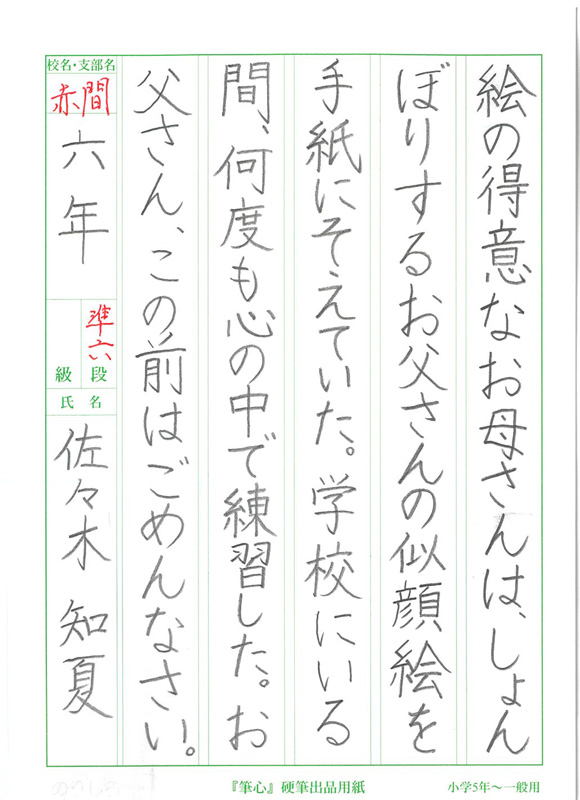 絵の得意なお母さんは、しょん
ぼりするお父さんの似顔絵を
手紙にそえていた。学校にいる
間、何度も心の中で練習した。お
父さん、この前はごめんなさい。
校名・支部名
赤間
六年
準六
段
級
氏名
佐々木 知夏
『筆心』硬筆出品用紙
小学5年〜一般用